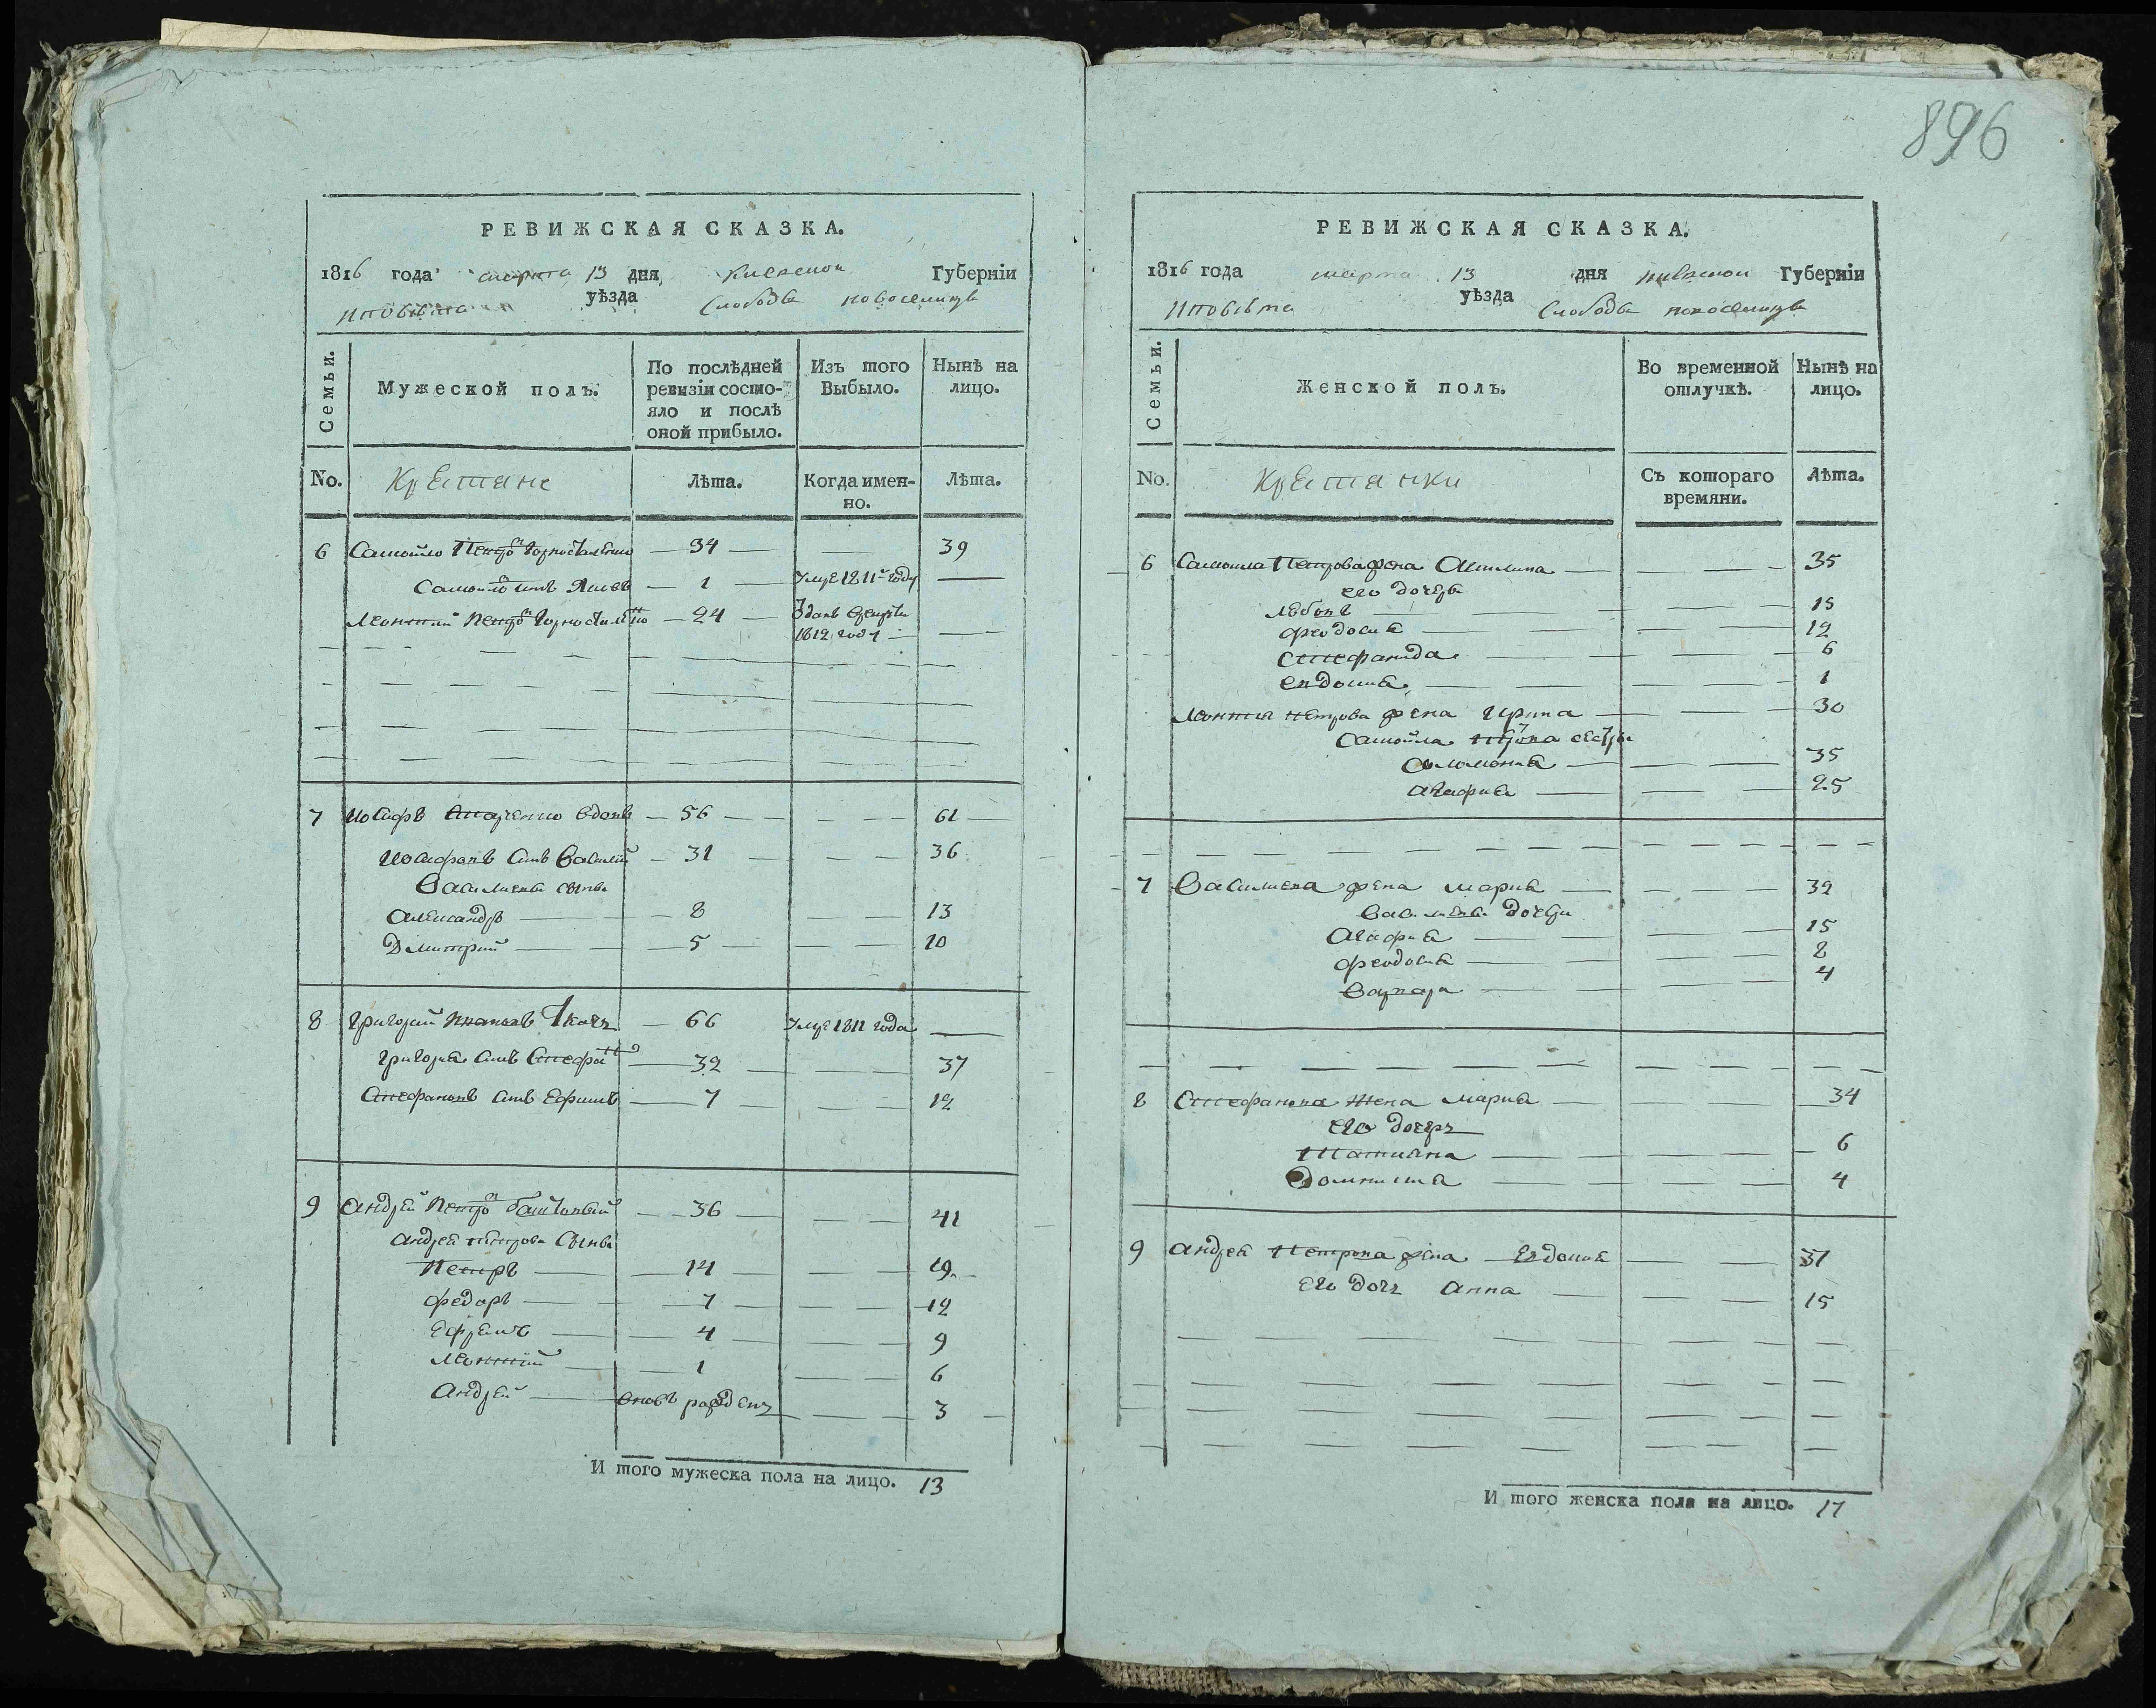 896
РЕВИЖСКАЯ СКАЗКА.
1816 года марта 13 дня Киевской Губерніи
уѣзда Слободы новоселицы
Семьи.
Мужеской полъ.
По послѣдней ревизіи состояло и послѣ оной прибыло.
Изъ того Выбыло.
Нынѣ на лицо.
No. Крестяне
Лѣта.
Когда именно.
Лѣта.
6 Самойло Петровъ — 34 — 39
Самойловъ сынъ Яковъ — 1 — умре 1811 году —
Леонтий Петровъ — 24 — зданъ
1812 году —
7 Иосифъ вдовъ — 56 — 61
Иосифовъ сынъ Василий — 31 — 36
Васильевы сыны
Александръ — 8 — 13
Дмитрий — 5 — 10
8 Григорий Ткачъ — 66 умре 1811 года —
Григория сынъ Стефанъ — 32 — 37
Стефановъ сынъ Ефимъ — 7 — 12
9 Андрей Петровъ — 36 — 41
Андрея Петрова сыны
Петръ — 14 — 19
Федоръ — 7 — 12
Ефремъ — 4 — 9
Леонтий — 1 — 6
Андрей — вновь рожденъ — 3
И того мужеска пола на лицо. 13
РЕВИЖСКАЯ СКАЗКА.
1816 года марта 13 дня киевской Губерніи
уѣзда Слободы новоселицы
Семьи.
Женской полъ.
Во временной отлучкѣ.
Нынѣ на лицо.
No. Крестянки
Съ котораго времяни.
Лѣта.
6 Самойла Петрова жена Акилина — 35
его дочеры
— 15
феодосия — 12
Стефанида — 6
Евдокия — 1
Леонтия Петрова жена Ирина — 30
Самойла Петрова сестры
Соломония — 35
Агафия — 25
7 Васильева жена Мария — 32
Васильевы дочери
Агафия — 15
феодосия — 8
Варвара — 4
8 Стефанова жена Мария — 34
его дочеры
Татияна — 6
Домникия — 4
9 Андрея Петрова жена Евдокия — 37
его дочь Анна — 15
И того женска пола на лицо. 17